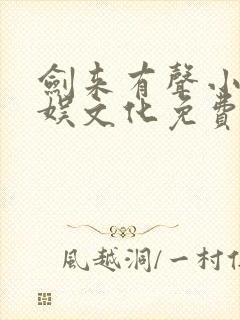 劍来有聲小
娛文化免費
風越洞/一村